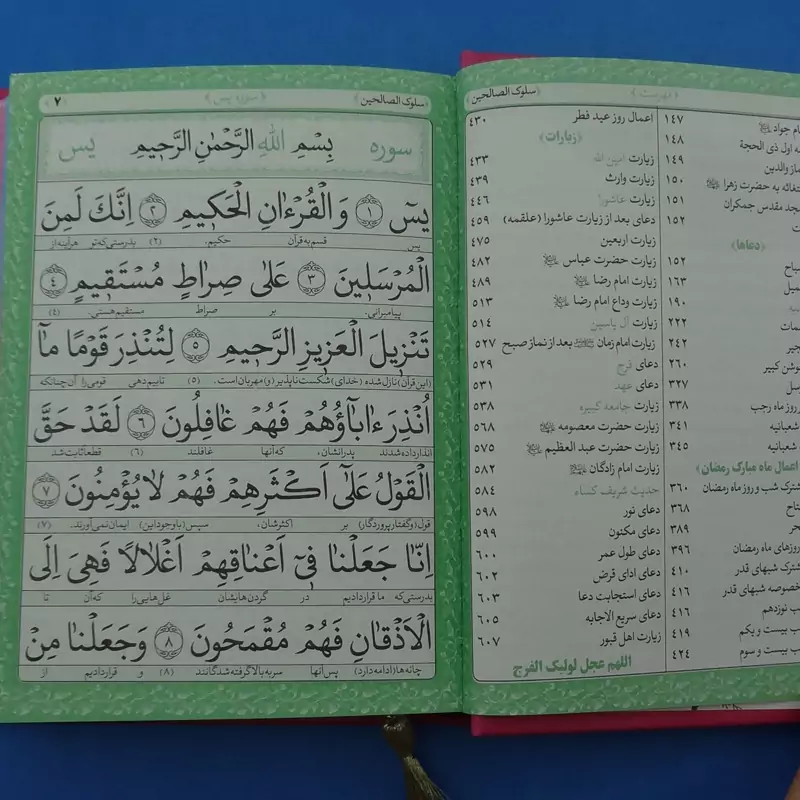 سلوک الصالحین
فهرست
ام جواد ۱۴۷
ه اول ذی الحجة ۱۴۸
ماز والدین ۱۴۹
تغاثه به حضرت زهرا ۱۵۰
جد مقدس جمکران ۱۵۱
ت ۱۵۲
دعاها
باح ۱۵۲
میل ۱۶۳
۱۹۰
مات ۲۲۲
جیر ۲۴۲
وشن کبیر ۲۶۰
سل ۳۲۷
روز ماه رجب ۳۳۸
شعبانیه ۳۴۱
شعبانیه ۳۴۵
اعمال ماه مبارک رمضان
شترک شب و روز ماه رمضان ۳۶۰
تاح ۳۶۸
حر ۳۸۹
روزهای ماه رمضان ۳۹۶
شترک شبهای قدر ۴۱۰
خصوصه شبهای قدر ۴۱۶
ب نوزدهم ۴۱۶
ب بیست و یکم ۴۱۹
ب بیست و سوم ۴۲۴
اعمال روز عید فطر ۴۳۰
زیارات
زیارت امین الله ۴۳۳
زیارت وارث ۴۳۹
زیارت عاشورا ۴۴۶
دعای بعد از زیارت عاشورا (علقمه) ۴۵۹
زیارت اربعین ۴۷۵
زیارت حضرت عباس ۴۸۲
زیارت امام رضا ۴۸۹
زیارت وداع امام رضا ۵۱۳
زیارت آل یاسین ۵۱۴
زیارت امام زمان بعد از نماز صبح ۵۲۷
دعای فرج ۵۲۹
دعای عهد ۵۳۱
زیارت جامعه کبیره ۵۳۸
زیارت حضرت معصومه ۵۶۸
زیارت حضرت عبد العظیم ۵۷۵
زیارت امام زادگان ۵۸۲
حدیث شریف کساء ۵۸۴
دعای نور ۵۹۸
دعای مکنون ۵۹۹
دعای طول عمر ۶۰۰
دعای ادای قرض ۶۰۲
دعای استجابت دعا ۶۰۳
دعای سریع الاجابه ۶۰۵
زیارت اهل قبور ۶۰۷
اللهم عجل لولیک الفرج
سلوک الصالحین
سوره یس
۷
سوره بِسْمِ اللهِ الرَّحْمٰنِ الرَّحیمِ یس
یسٓ ﴿۱﴾ وَ الْقُرْءٰانِ الْحَکیمِ ﴿۲﴾ اِنَّکَ لَمِنَ
یس قسم به قرآن حکیم، (۲) بدرستی که تو هرآینه از
الْمُرْسَلینَ ﴿۳﴾ عَلیٰ صِراٰطٍ مُسْتَقیمٍ ﴿۴﴾
پیامبرانی. بر صراط مستقیم هستی. (۴)
تَنْزیلَ الْعَزیزِ الرَّحیمِ ﴿۵﴾ لِتُنْذِرَ قَوْمًا مآ
(این قرآن) نازل شده (خدای) شکست ناپذیر (و) مهربان است. (۵) تا بیم دهی قومی را آن چنانکه
اُنْذِرَ ءٰابآؤُهُمْ فَهُمْ غافِلُونَ ﴿۶﴾ لَقَدْ حَقَّ
انذار داده شدند پدرانشان، که آنها غافلند (۶) قطعا ثابت شد
الْقَوْلُ عَلیٰٓ اَکْثَرِهِمْ فَهُمْ لا یُؤْمِنُونَ ﴿۷﴾
قول (و گفتار پروردگار) بر اکثرشان، سپس (با وجود این) ایمان نمی آورند. (۷)
اِنّا جَعَلْنا فیٓ اَعْناقِهِمْ اَغْلالاً فَهِیَ اِلَی
بدرستی که ما قرار دادیم در گردن هایشان غل هایی را که آن تا
الْاَذْقانِ فَهُمْ مُقْمَحُونَ ﴿۸﴾ وَ جَعَلْنا مِنْ
چانه ها (ادامه دارد) پس آنها سر به بالا گرفته شدگانند (۸) و قرار دادیم از